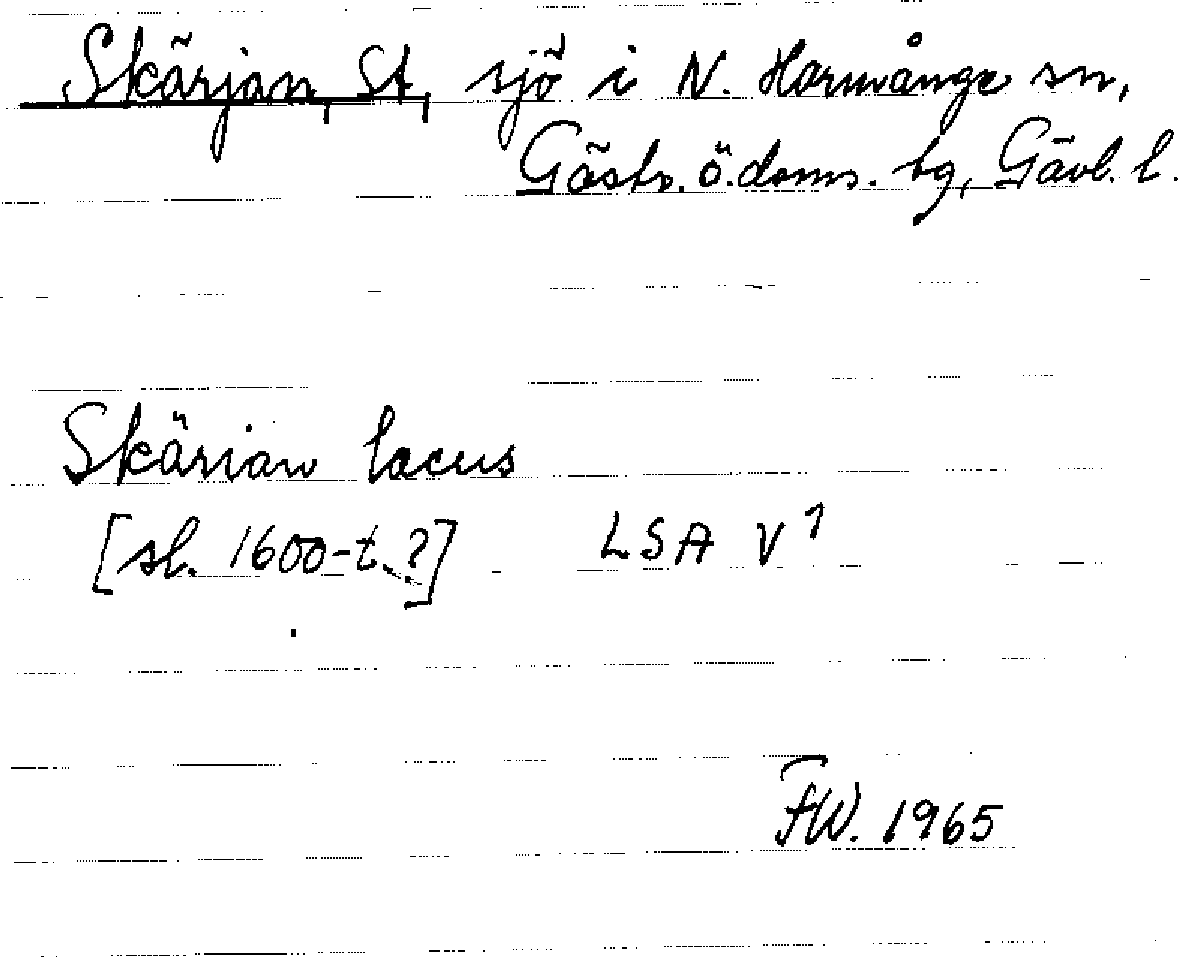 Skärjan, St, sjö i N. Harmånge sn,
Gästr. ö. doms. bg, Gävl. l.
Skärian lacus
[sl. 1600-t.?] LSA V 1
FW. 1965